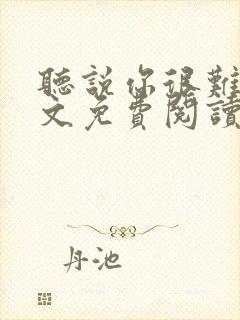 聽說你很難
文免費閱讀
丹池